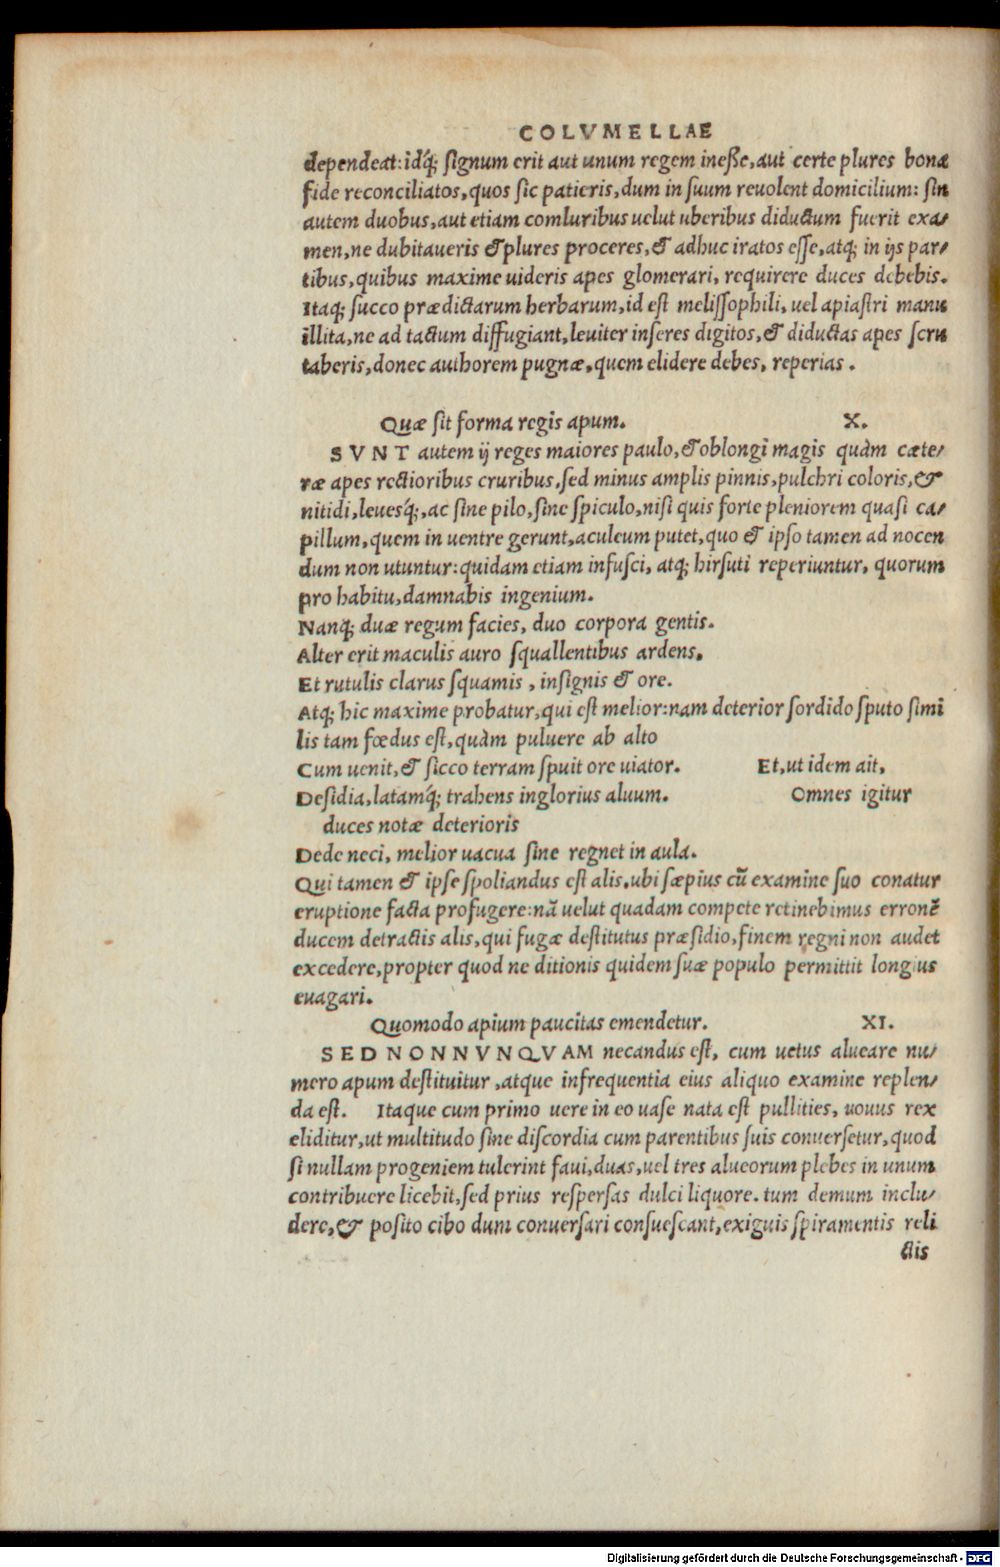 COLVMELLAE
dependeat:idq́; ſignum erit aut unum regem ineſſe,aut certe plures bonæ
fide reconciliatos,quos ſic patieris,dum in ſuum reuolent domicilium: ſin
autem duobus,aut etiam comluribus uelut uberibus diductum fuerit exa/
men,ne dubitaueris & plures proceres,& adhuc iratos eſſe,atq; in ijs par/
tibus,quibus maxime uideris apes glomerari, requirere duces debebis.
Itaq; ſucco prædictarum herbarum,id eſt meliſſophili, uel apiaſtri manu
illita,ne ad tactum diffugiant,leuiter inſeres digitos,& diductas apes ſcru
taberis,donec authorem pugnæ,quem elidere debes, reperias .
Quæ ſit forma regis apum. X.
SVNT autem ij reges maiores paulo,& oblongi magis quàm cæte/
ræ apes rectioribus cruribus,ſed minus amplis pinnis,pulchri coloris,&
nitidi,leuesq́;,ac ſine pilo,ſine ſpiculo,niſi quis forte pleniorem quaſi ca/
pillum,quem in uentre gerunt,aculeum putet,quo & ipſo tamen ad nocen
dum non utuntur:quidam etiam infuſci, atq; hirſuti reperiuntur, quorum
pro habitu,damnabis ingenium.
Nanq; duæ regum facies, duo corpora gentis.
Alter erit maculis auro ſquallentibus ardens.
Et rutulis clarus ſquamis , inſignis & ore.
Atq; hic maxime probatur,qui eſt melior:nam deterior ſordido ſputo ſimi
lis tam fœdus eſt,quàm puluere ab alto
Cum uenit,& ſicco terram ſpuit ore uiator. Et,ut idem ait,
Deſidia,latamq́; trahens inglorius aluum. Omnes igitur
duces notæ deterioris
Dede neci, melior uacua ſine regnet in aula.
Qui tamen & ipſe ſpoliandus eſt alis.ubi ſæpius cũ examine ſuo conatur
eruptione facta profugere:nã uelut quadam compete retinebimus erronẽ
ducem detractis alis,qui fugæ deſtitutus præſidio,finem regni non audet
excedere,propter quod ne ditionis quidem ſuæ populo permittit longius
euagari.
Quomodo apium paucitas emendetur. XI.
SED NONNVNQVAM necandus eſt, cum uetus alueare nu/
mero apum deſtituitur ,atque infrequentia eius aliquo examine replen/
da eſt. Itaque cum primo uere in eo uaſe nata eſt pullities, uouus rex
eliditur,ut multitudo ſine diſcordia cum parentibus ſuis conuerſetur,quod
ſi nullam progeniem tulerint faui,duas,uel tres alueorum plebes in unum
contribuere licebit,ſed prius reſperſas dulci liquore. tum demum inclu/
dere,& poſito cibo dum conuerſari conſueſcant,exiguis ſpiramentis reli
ctis
Digitalisierung gefördert durch die Deutsche Forschungsgemeinschaft - DFG